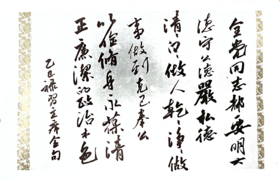 全党同志都要明大
德守公德嚴私德
清白做人乾淨做
事做到克己奉公
以俭脩身永葆清
正廉潔的政治本色
乙巳 錄習主席金句